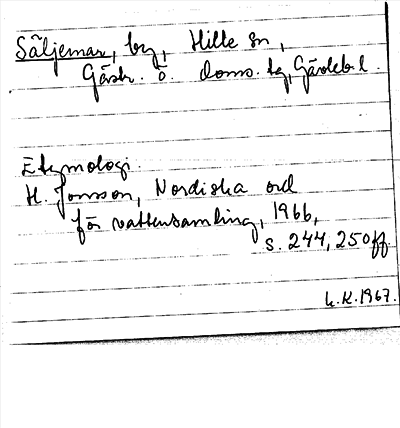 Säljemar, by, Hille sn,
Gästr. ö. doms. tg, Gävleb. l.
Etymologi:
H. Jonsson, Nordiska ord
för vattensamling, 1966,
s. 244, 250ff.
L.K. 1967.